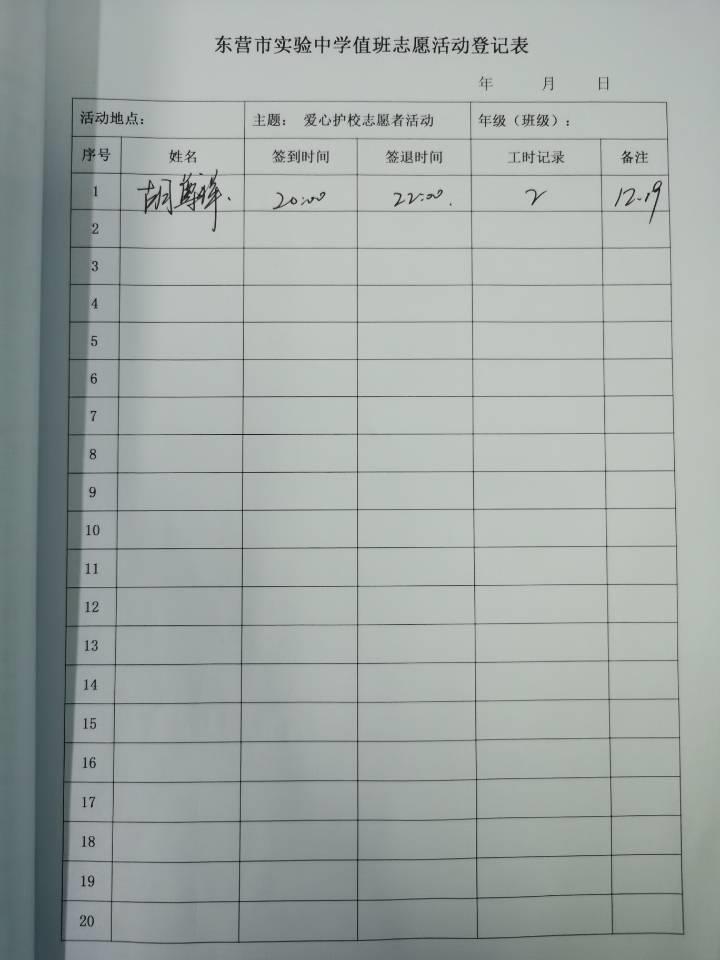 东营市实验中学值班志愿活动登记表
年 月 日
活动地点： 主题： 爱心护校志愿者活动 年级（班级）：
序号 姓名 签到时间 签退时间 工时记录 备注
1 胡尊祥. 20:00 22:00. 2 12.19
2
3
4
5
6
7
8
9
10
11
12
13
14
15
16
17
18
19
20